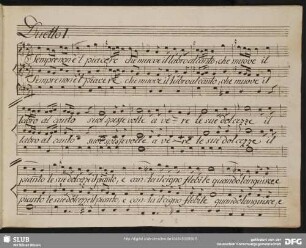 Duetto I
Sempre non è il piacere che muove il labro al canto, che muove il
Sempre non è il piacere che muove il labro al canto, che muove il
labro al canto suol spesse volte a ve-re le sue dolcezze il
labro al canto suol spesse volte a ve-re le sue dolcezze il
pianto le sue dolcezze il pianto, e canta il cigno flebile quando languisce, e
pianto le sue dolcezze il pianto, e canta il cigno flebile quando languisce, e
SLUB